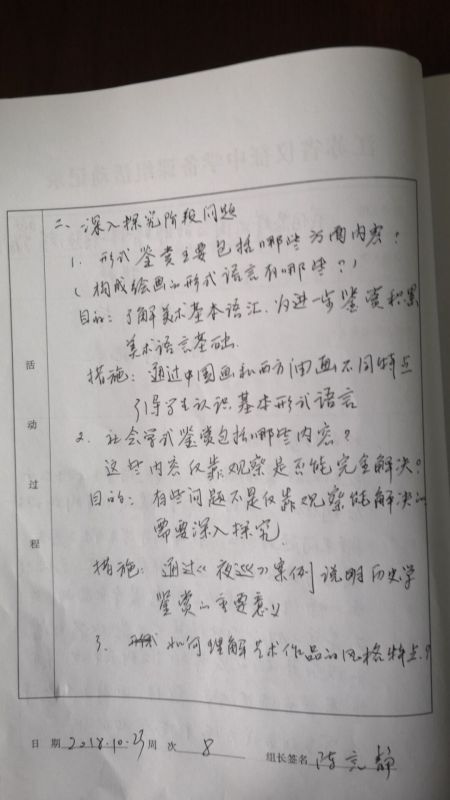 二、深入探究阶段问题
1. 形式鉴赏主要包括哪些方面内容?
(构成绘画的形式语言有哪些?)
目的:了解美术基本语汇.为进一步鉴赏积累
美术语言基础.
措施:通过中国画和西方油画不同特点
引导学生认识基本形式语言
2. 社会学式鉴赏包括哪些内容?
这些内容仅靠观察是否能完全解决?
目的:有些问题不是仅靠观察能解决的
需要深入探究.
措施:通过《夜巡》案例说明历史学
鉴赏的重要意义
3. 如何理解艺术作品的风格特点?
活动过程
日期 2018.10.23 周次 8 组长签名 陈 静